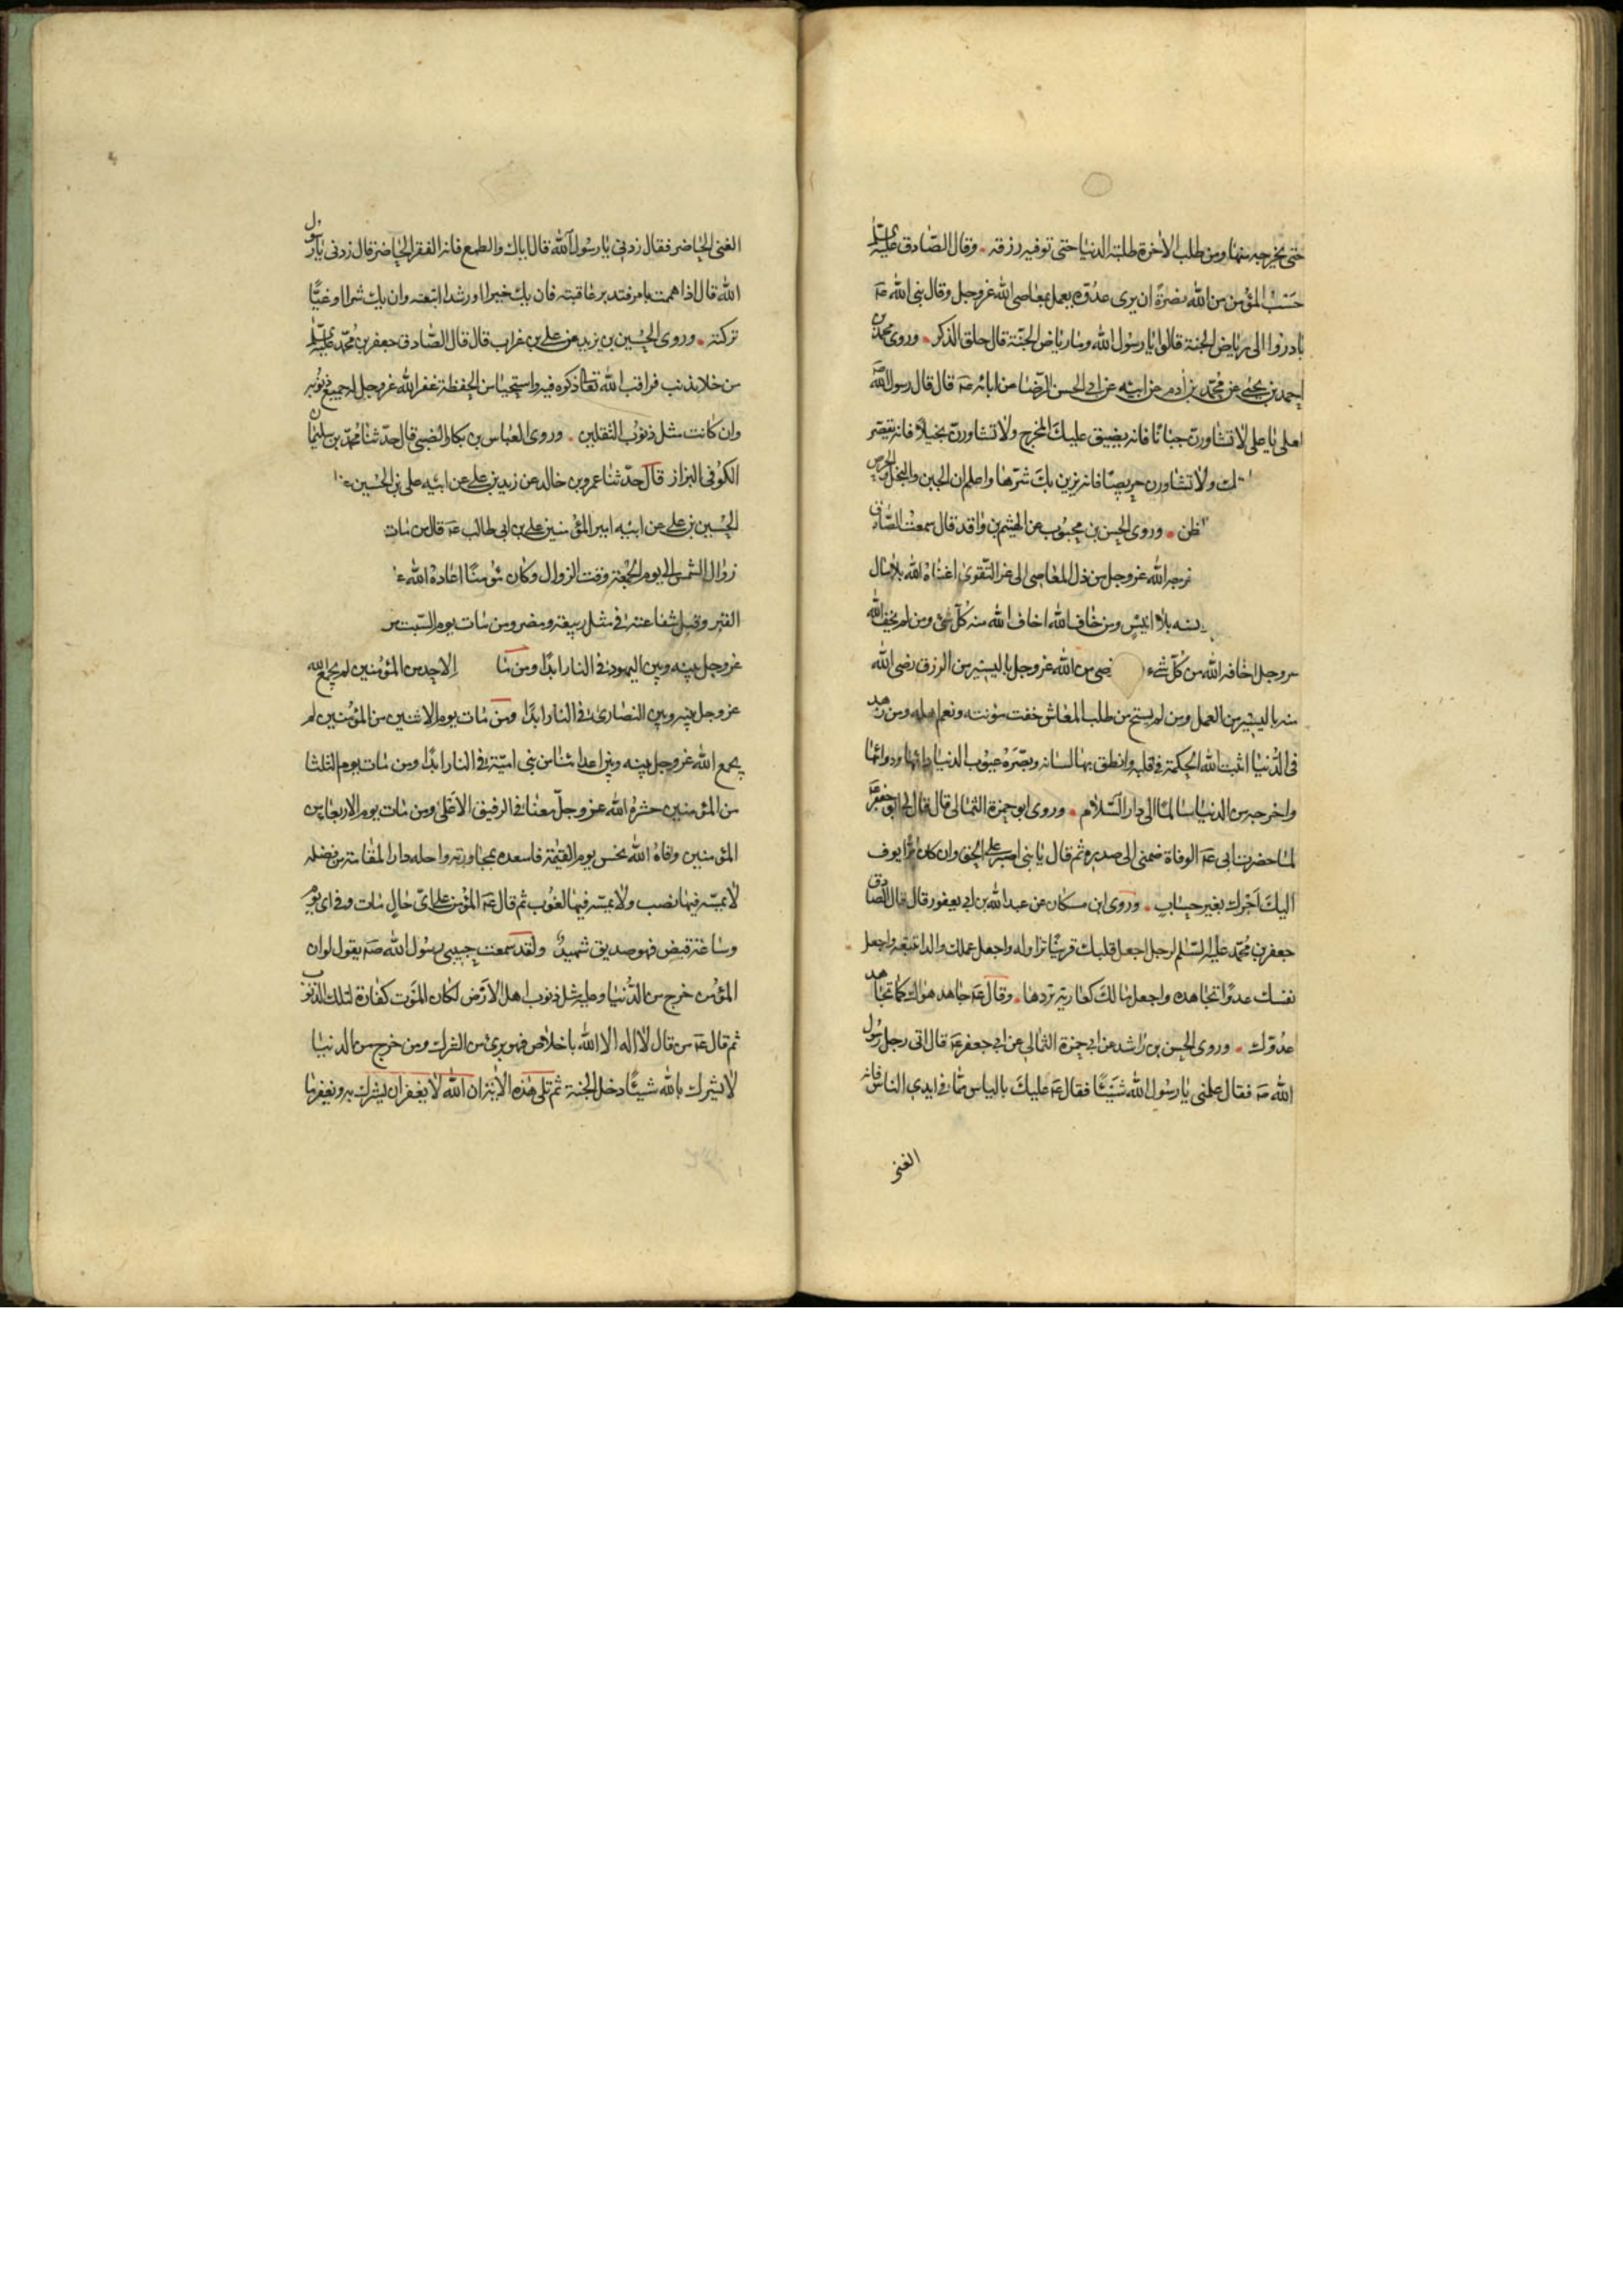 حتى يخرجه منها ومن طلب الاخرة طلبته الدنيا حتى توفيه رزقه وقال الصادق عليه السلم
حسب المؤمن من الله نصرة ان يرى عدوه يعمل بمعاصى الله عز وجل وقال نبى الله صه
بادروا الى رياض الجنة قالوا يا رسول الله وما رياض الجنة قال حلق الذكر وروى محمد بن
احمد بن يحيى عن محمد بن ادم عن ابيه عن ابي الحسن الرضا عن ابائه عه قال قال رسول الله صه
لعلى يا على لا تشاورن جبانا فانه يضيق عليك المخرج ولا تشاورن بخيلا فانه يقصر
ك ولا تشاورن حريصا فانه يزين لك شرها واعلم ان الجبن والبخل والحرص
لظن وروى الحسن بن محبوب عن الهيثم بن واقد قال سمعت الصادق
خرجه الله عز وجل من ذل المعاصى الى عز التقوى اغناه الله بلا مال
نسه بلا انيس ومن خاف الله اخاف الله منه كل شئ ومن لم يخف الله
عز وجل اخافه الله من كل شئ ضى من الله عز وجل باليسير من الرزق رضى الله
منه باليسير من العمل ومن لم يستح من طلب المعاش خفت مؤنته ونعم اهله ومن زهد
فى الدنيا اثبت الله الحكمة فى قلبه وانطق بها لسانه وبصره عيوب الدنيا دائها ودوائها
واخرجه من الدنيا سالما الى دار السلام وروى ابو حمزة الثمالى قال قال لى ابو جعفر عه
لما حضرت ابى عه الوفاة ضمنى الى صدره ثم قال يا بنى اصبر على الحق وان كان مرا يوف
اليك اجرك بغير حساب وروى ابن مسكان عن عبد الله بن ابي يعفور قال قال الصادق
جعفر بن محمد عليه السلم لرجل اجعل قلبك قرينا تزاوله واجعل عملك والدا تتبعه واجعل
نفسك عدوا تجاهده واجعل مالك كعارية تردها وقال عه جاهد هواك كما تجاهد
عدوك وروى الحسن بن راشد عن ابي حمزة الثمالي عن ابي جعفر عه قال اتى رجل رسول
الله صه فقال علمنى يا رسول الله شيئا فقال عه عليك بالياس مما فى ايدى الناس فانه
الغنى
الغنى الحاضر فقال زدنى يا رسول الله قال اياك والطمع فانه الفقر الحاضر قال زدنى يا رسول
الله قال اذا هممت بامر فتدبر عاقبته فان يك خيرا او رشدا اتبعته وان يك شرا او غيا
تركته وروى الحسين بن يزيد عن على بن غراب قال قال الصادق جعفر بن محمد عليه السلم
من خلا بذنب فراقب الله تعالى ذكره فيه واستحيا من الحفظة غفر الله عز وجل له جميع ذنوبه
وان كانت مثل ذنوب الثقلين وروى العباس بن بكار الضبى قال حدثنا محمد بن سليمان
الكوفى البزاز قال حدثنا عمرو بن خالد عن زيد بن على عن ابيه على بن الحسين
الحسين بن على عن ابيه امير المؤمنين على بن ابى طالب عه قال من مات
زوال الشمس الى يوم الجمعة وقت الزوال وكان مؤمنا اعاذه الله
القبر وقبل شفاعته فى مثل ربيعة ومضر ومن مات يوم السبت من
عز وجل بينه وبين اليهود فى النار ابدا ومن ما الاحد من المؤمنين لم يجمع الله
عز وجل بينه وبين النصارى فى النار ابدا ومن مات يوم الاثنين من المؤمنين لم
يجمع الله عز وجل بينه وبين اعدائنا من بنى امية فى النار ابدا ومن مات يوم الثلثا
من المؤمنين حشره الله عز وجل معنا فى الرفيق الاعلى ومن مات يوم الاربعا من
المؤمنين وافاه الله بحس يوم القيمة فاسعده بمجاورته واحله دار المقامة من فضله
لا يمسه فيها نصب ولا يمسه فيها لغوب ثم قال عه المؤمن على اى حال مات وفى اى يوم
وساعة قبض فهو صديق شهيد ولقد سمعت حبيبى رسول الله صه يقول لو ان
المؤمن خرج من الدنيا وعليه مثل ذنوب اهل الارض لكان الموت كفارة لتلك الذنوب
ثم قال عه من قال لا اله الا الله باخلاص فهو برئ من الشرك ومن خرج من الدنيا
لا يشرك بالله شيئا دخل الجنة ثم تلى هذه الاية ان الله لا يغفر ان يشرك به ويغفر ما